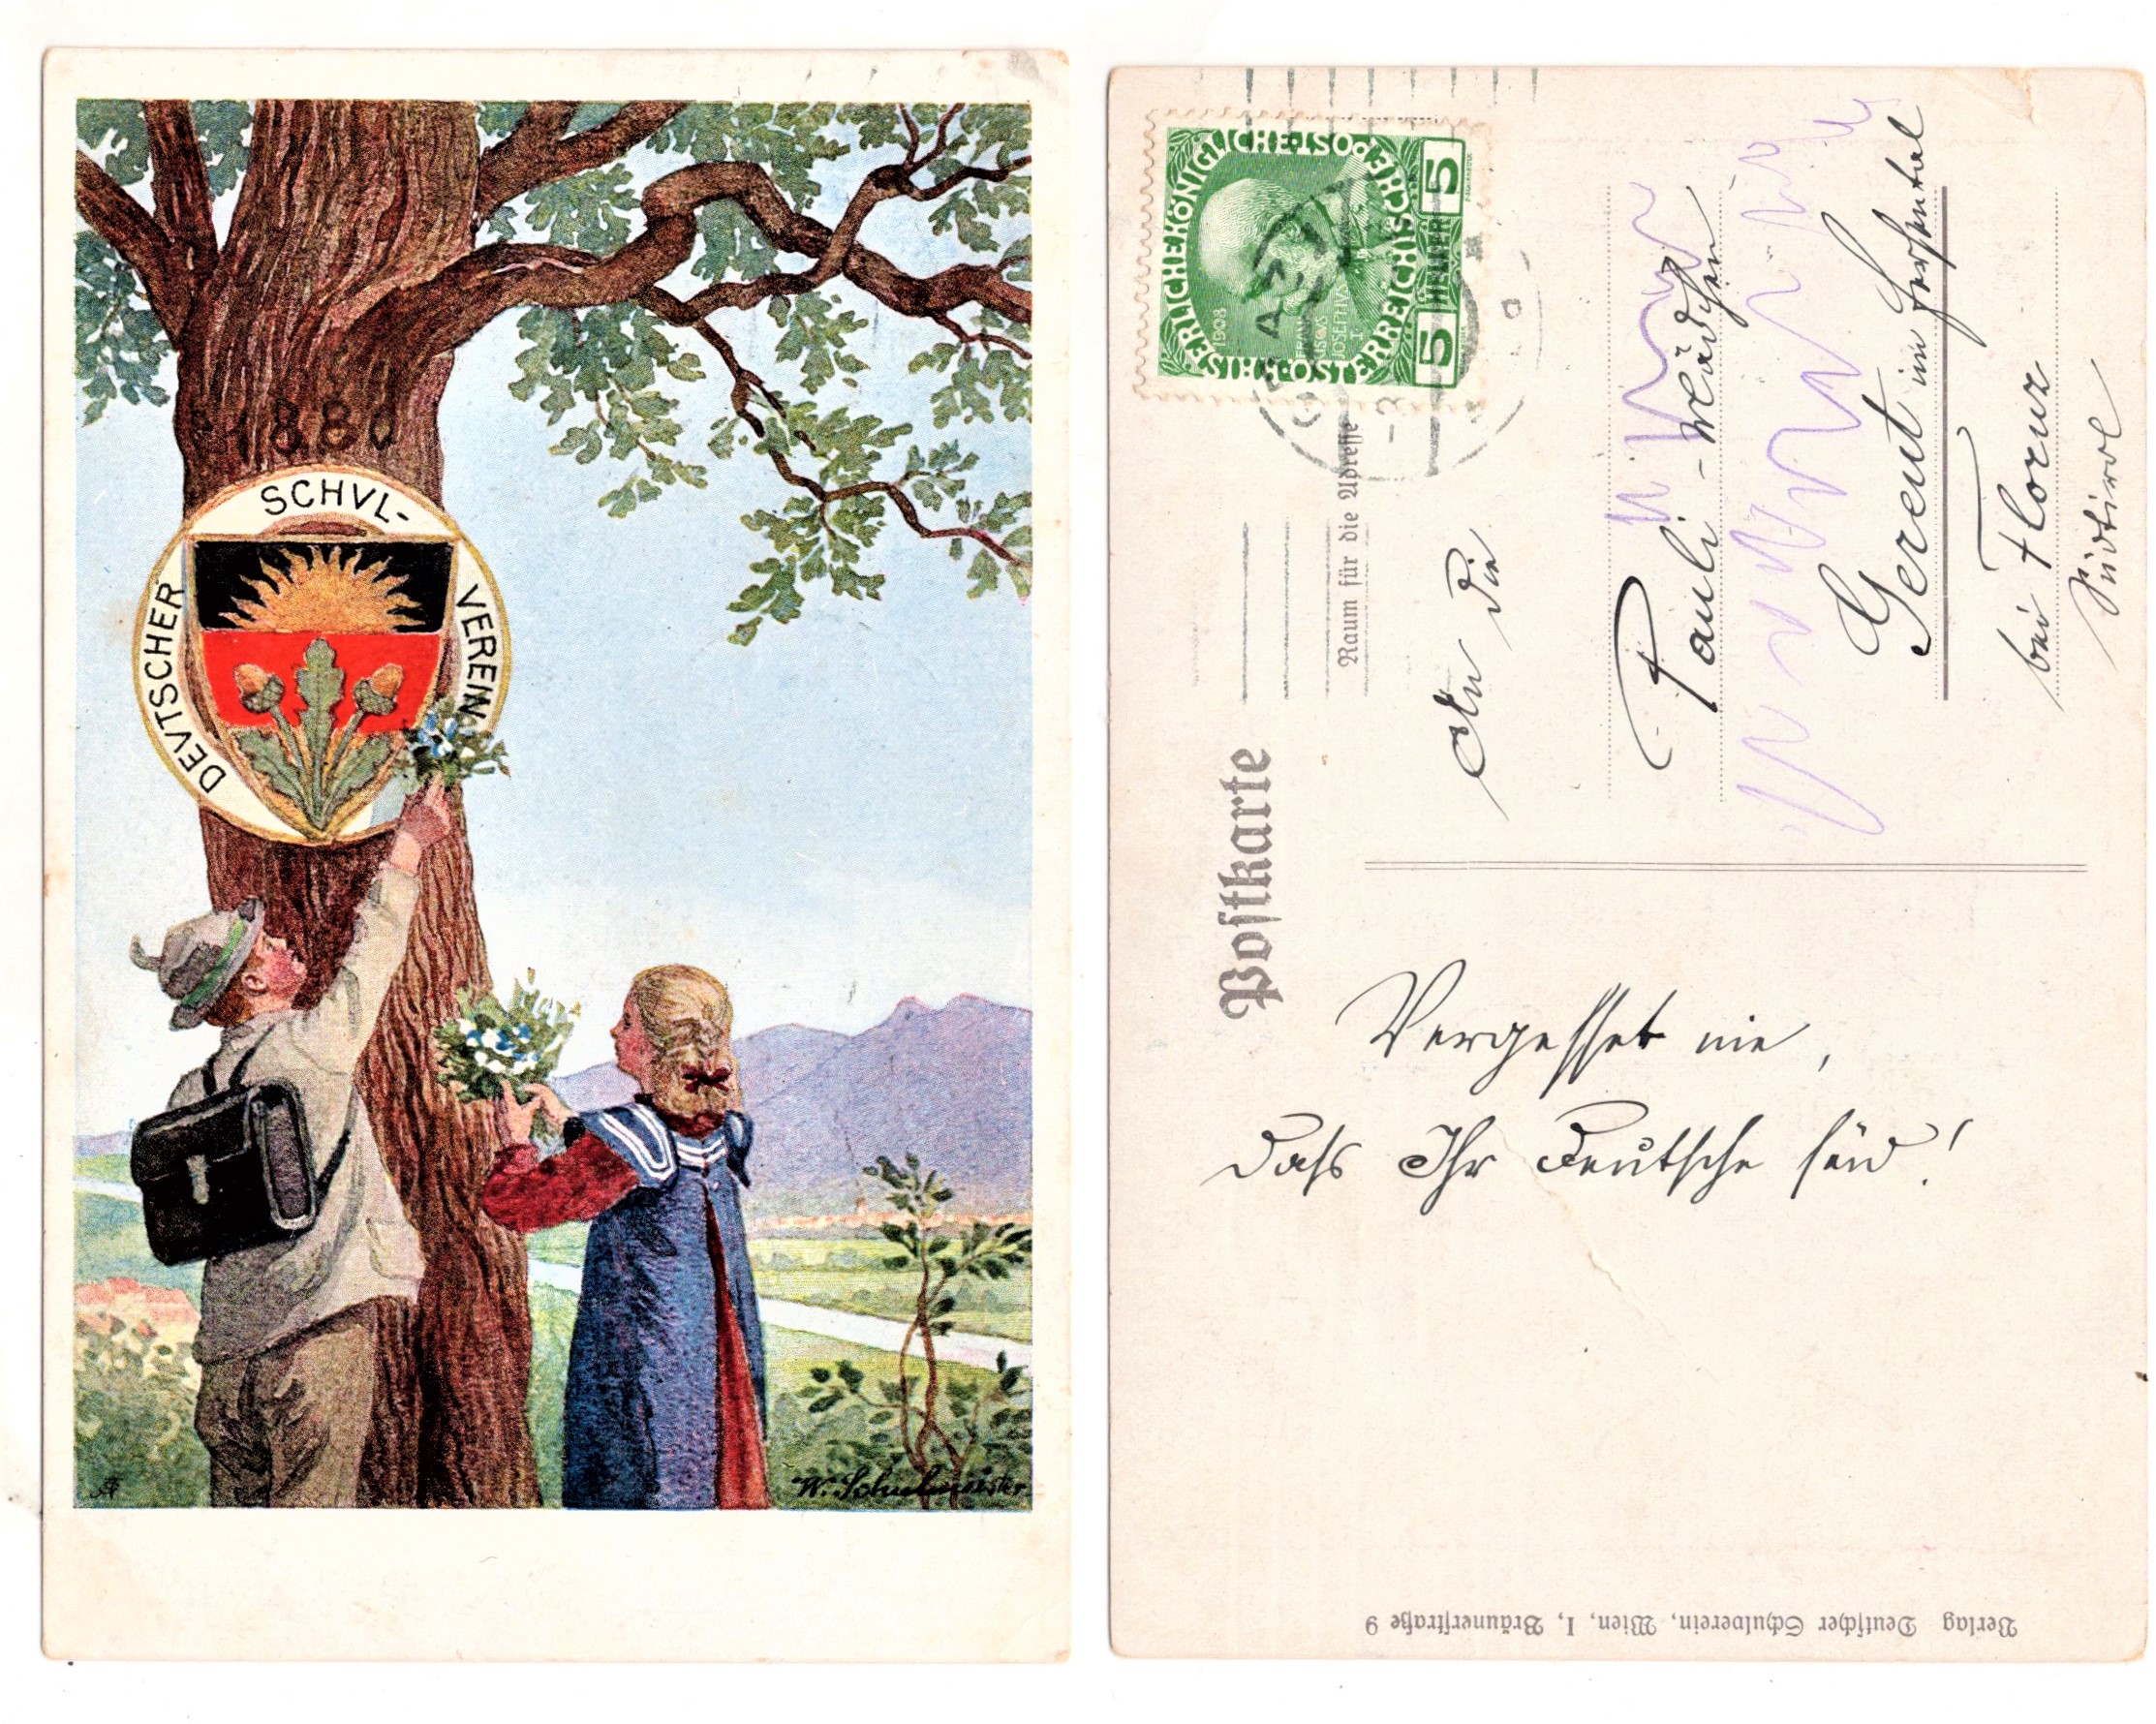 1880
DEVTSCHER SCHVL-VEREIN
W. Schulmeister
KAISERLICHEKÖNIGLICHE POST
ÖSTERREICHISCHE
1908
FRAN
CISCVS
JOSEPHVS
I
5 HELLER 5
GRAZ
Postkarte
Raum für die Adresse
An die
Pauli-Mädchen
Gereut im Fersental
bei Floruz
Südtirol
Vergesset nie,
dass Ihr Deutsche seid!
Verlag Deutscher Schulverein, Wien, I, Bräunerstraße 9